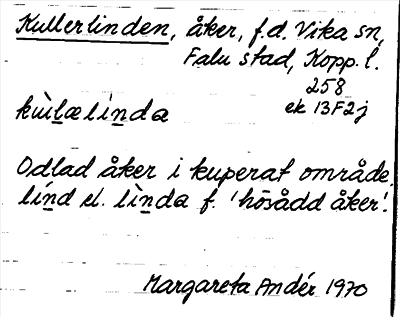 Kullerlinden, åker, f.d. Vika sn,
Falu stad, Kopp. l.
258
ek 13F2j
kùlælìnda
Odlad åker i kuperat område.
línd el. lìnda f. 'hösådd åker'.
Margareta Andér 1970